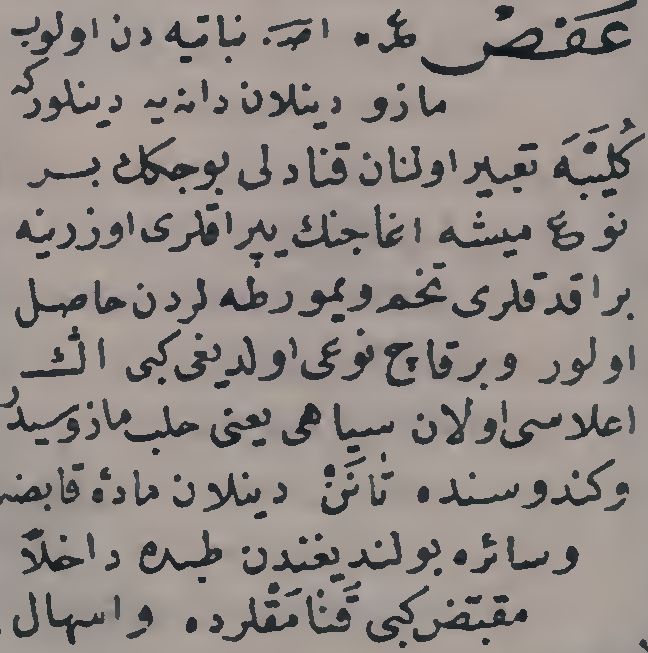 عَفَصْ ع. امـ. نباتیه دن اولوب
مازو دینلان دانه یه دینلورکه
كُلَيَبْهَ تعبیر اولنان قنادلی بوجکك بـر
نوع میشه اغاجنك یپراقلری اوزرینه
براقدقلری تخم ویمورطه لردن حاصل
اولور وبرقاچ نوعی اولدیغی کبی اڭ
اعلاسی اولان سیاهی یعنی حلب مازوسیدر
وکندوسنده تانَنْ دینلان ماده قابضه
وسائره بولندیغندن طبده داخلاً
مقبض کبی قنامقلرده واسهال